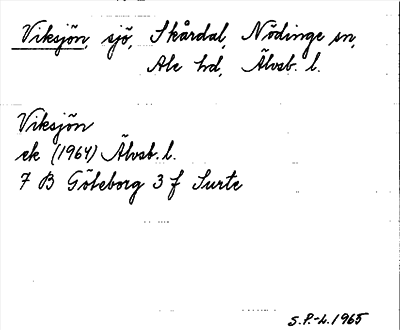 Viksjön, sjö, Skårdal, Nödinge sn,
Ale hd, Älvsb. l.
Viksjön
ek (1964) Älvsb. l.
7 B Göteborg 3 f Surte
S.P.-L. 1965